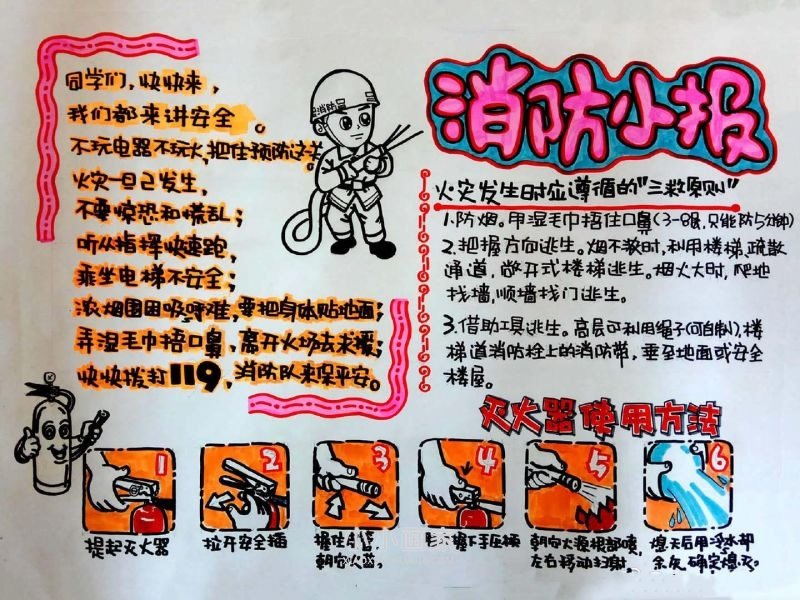 消防小报
同学们，快快来，
我们都来讲安全。
不玩电器不玩火，把住预防这关
火灾一旦己发生，
不要惊恐和慌乱；
听从指挥快速跑，
乘坐电梯不安全；
浓烟围困呼难，要把身体贴地面；
弄湿毛巾捂口鼻，离开火场去求援；
快快拨打119，消防队来保平安。
消防员
火灾发生时应遵循的"三救原则"
1.防烟。用湿毛巾捂住口鼻(3-8层，只能防5分钟)
2.把握方向逃生。烟不散时，利用楼梯、疏散
通道，敞开式楼梯逃生。烟火大时，爬地
找墙，顺墙找门逃生。
3.借助工具逃生。高层可利用绳子(可自制)、楼
梯道消防栓上的消防带，垂至地面或安全
楼屋。
灭火器使用方法
1
提起灭火器
2
拉开安全插
3
握住
朝向火源
4
握下手压柄
5
朝向火源根部喷，
左右移动扫射。
6
熄灭后用冷水却
余灰，确定熄灭。